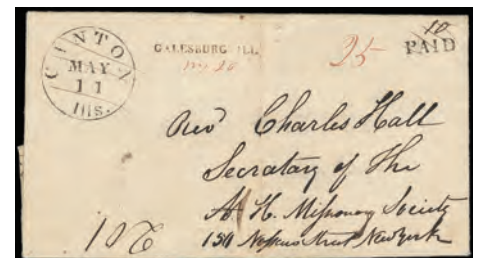 CANTON
MAY
11
Ills.
GALESBURG ILL.
25
10
PAID
Revd Charles Hall
Secratary of the
A. H. Missonary Society
150 Nassau Street New York